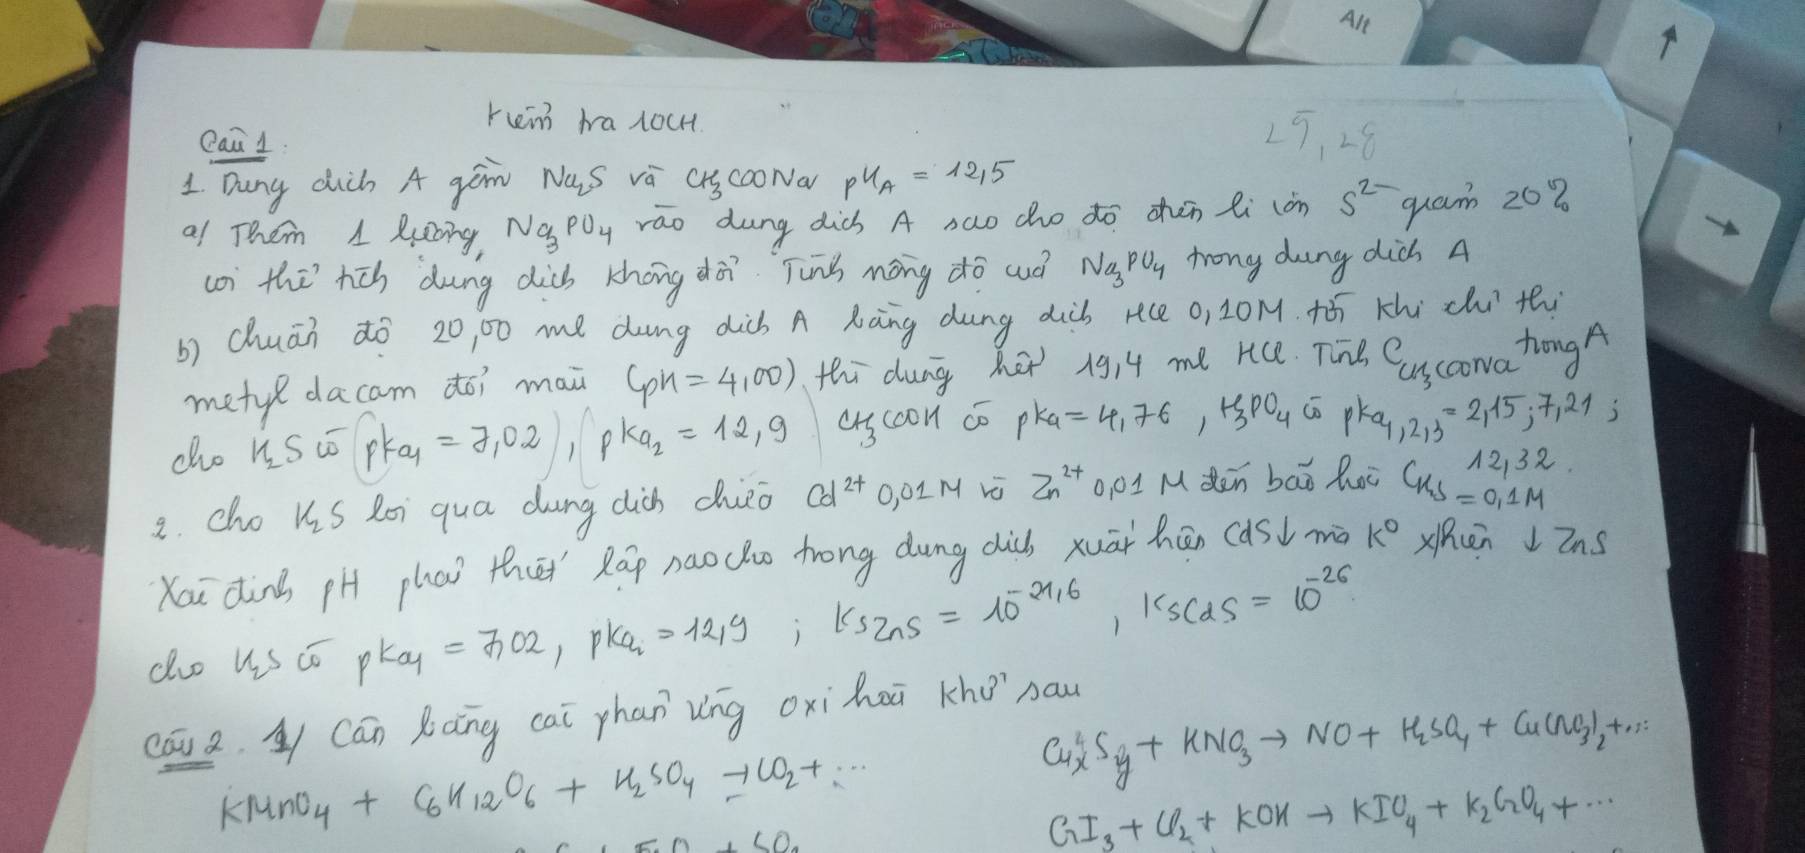 Alt
↑
→
Kiểm tra 10CH.
25, 28
Câu 1:
1. Dung dịch A gồm Na₂S và CH₃COONa pH_A = 12,5
a/ Thêm 1 lượng Na₃PO₄ vào dung dịch A sao cho độ điện li ion S²⁻ giảm 20%
coi thể tích dung dịch không đổi. Tính nồng độ của Na₃PO₄ trong dung dịch A
b) Chuẩn độ 20,00 ml dung dịch A bằng dung dịch HCl 0,10M tới khi chỉ thị
metyl da cam đổi màu (pH = 4,00) thì dùng hết 19,4 ml HCl. Tính C_CH₃COONa trong A
cho H₂S có pka₁ = 7,02), (pka₂ = 12,9 CH₃COOH có pka = 4,76, H₃PO₄ có pka₁,₂,₃ = 2,15; 7,21; 12,32.
2. Cho H₂S lội qua dung dịch chứa Cd²⁺ 0,01M và Zn²⁺ 0,01 M đến bão hoà C_H₂S = 0,1M
Xác định pH phải thiết lập sao cho trong dung dịch xuất hiện CdS↓ mà K⁰ x/hiện ↓ ZnS
cho H₂S có pka₁ = 7,02, pka₂ = 12,9 ; Ks ZnS = 10⁻²¹,⁶, Ks CdS = 10⁻²⁶.
Câu 2. 1/ Cân bằng các phản ứng oxi hoá khử sau
KMnO₄ + C₆H₁₂O₆ + H₂SO₄ → CO₂ + ...
CuₓSᵧ + KNO₃ → NO + H₂SO₄ + Cu(NO₃)₂ + ...
CrI₃ + Cl₂ + KOH → KIO₄ + K₂CrO₄ + ...